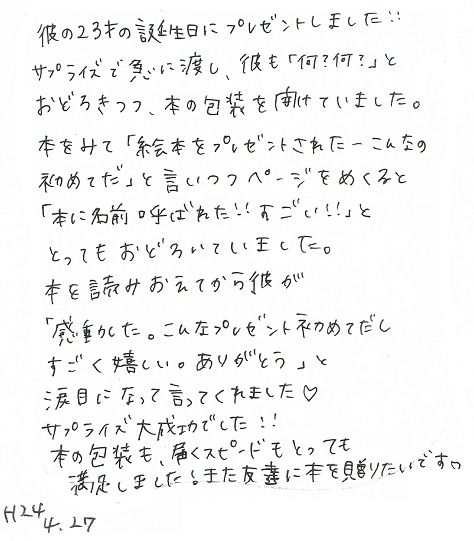 彼の23才の誕生日にプレゼントしました!!
サプライズで急に渡し、彼も「何?何?」と
おどろきつつ、本の包装を開けていました。
本をみて「絵本をプレゼントされたーこんなの
初めてだ」と言いつつページをめくると
「本に名前呼ばれた!!すごい!!」と
とってもおどろいていました。
本を読みおえてから彼が
「感動した。こんなプレゼント初めてだし
すごく嬉しい。ありがとう」と
涙目になって言ってくれました♡
サプライズ大成功でした!!
本の包装も、届くスピードもとっても
満足しました!また友達に本を贈りたいです。
H24
4.27